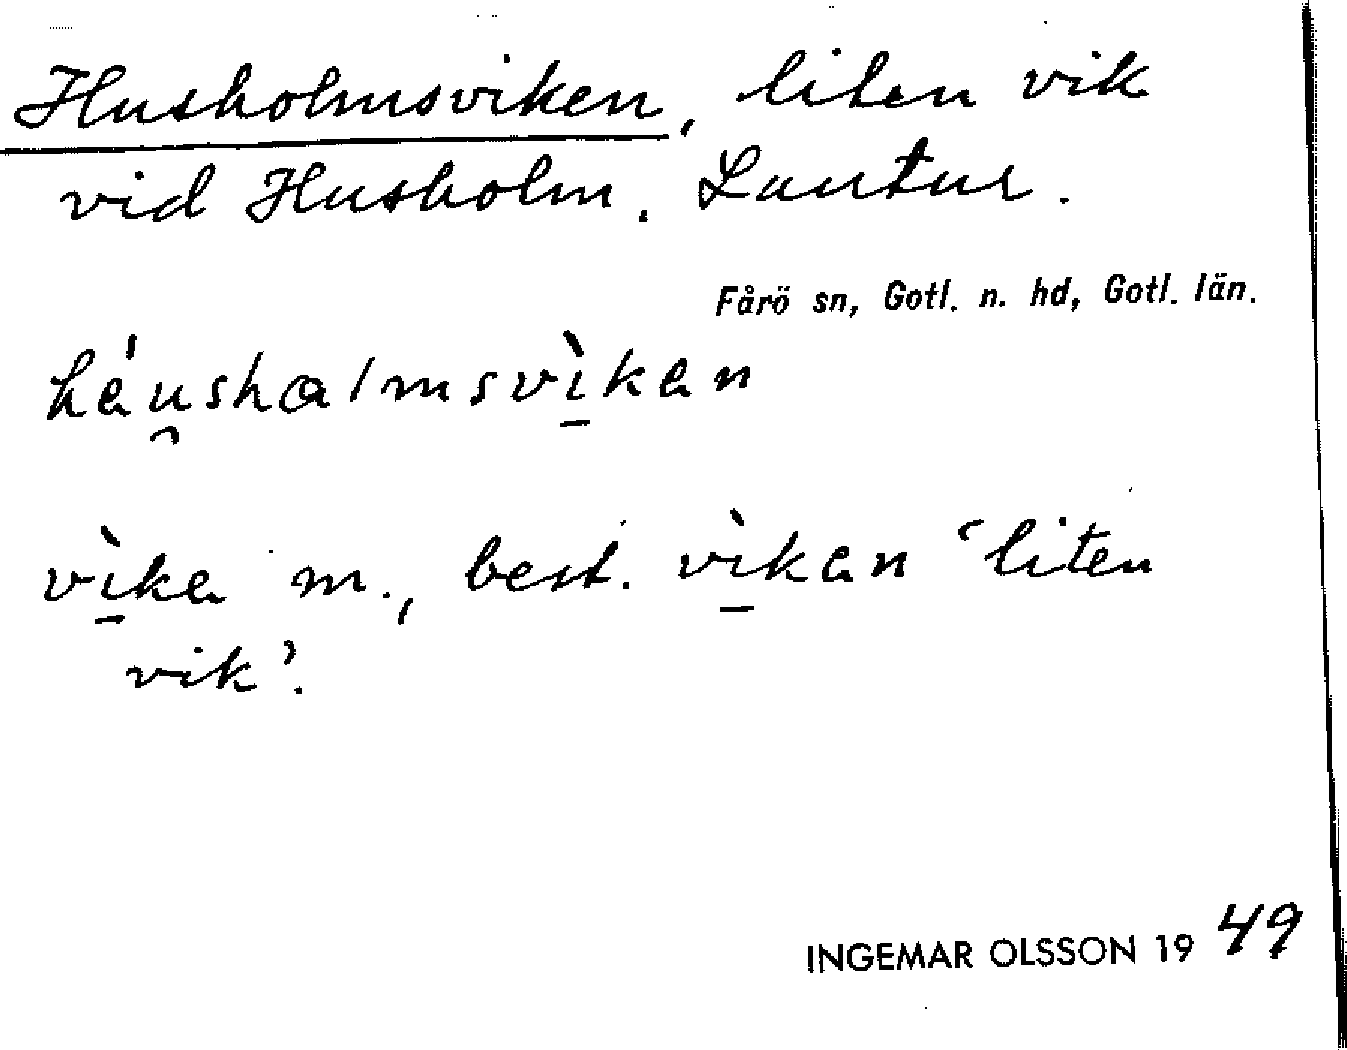 Husholmsviken, liten vik
vid Husholm. Lautur.
Fårö sn, Gotl. n. hd, Gotl. län.
háu̯shalmsvì̱kan
vì̱ka m., best. vì̱kan ‘liten
vik’.
INGEMAR OLSSON 1949